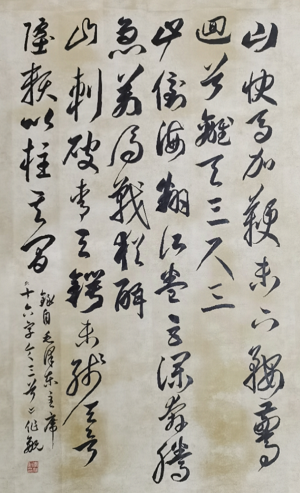 山快馬加鞭未下鞍驚
回首離天三尺三
山倒海翻江卷巨瀾奔騰
急萬馬戰猶酣
山刺破青天鍔未殘天欲
墮賴以柱其間
錄自毛澤東主席
十六字令三首